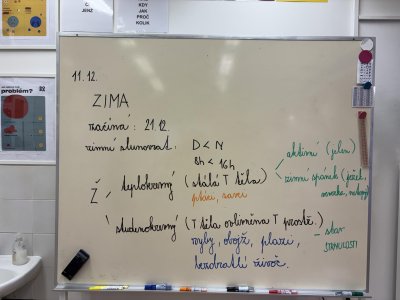 C.
JENŽ
KDY
JAK
PROČ
KOLIK
problém?
11. 12.
ZIMA
začíná: 21. 12.
zimní slunovrat: D < N
8h < 16h
Ž
teplokrevný (stálá T těla)
ptáci, savci
aktivní (jelen)
zimní spánek (ježek,
studenokrevný (T těla ovlivněna T prostř.)
ryby, obojž., plazi,
bezobratlí živoč.
stav
STRNULOSTI